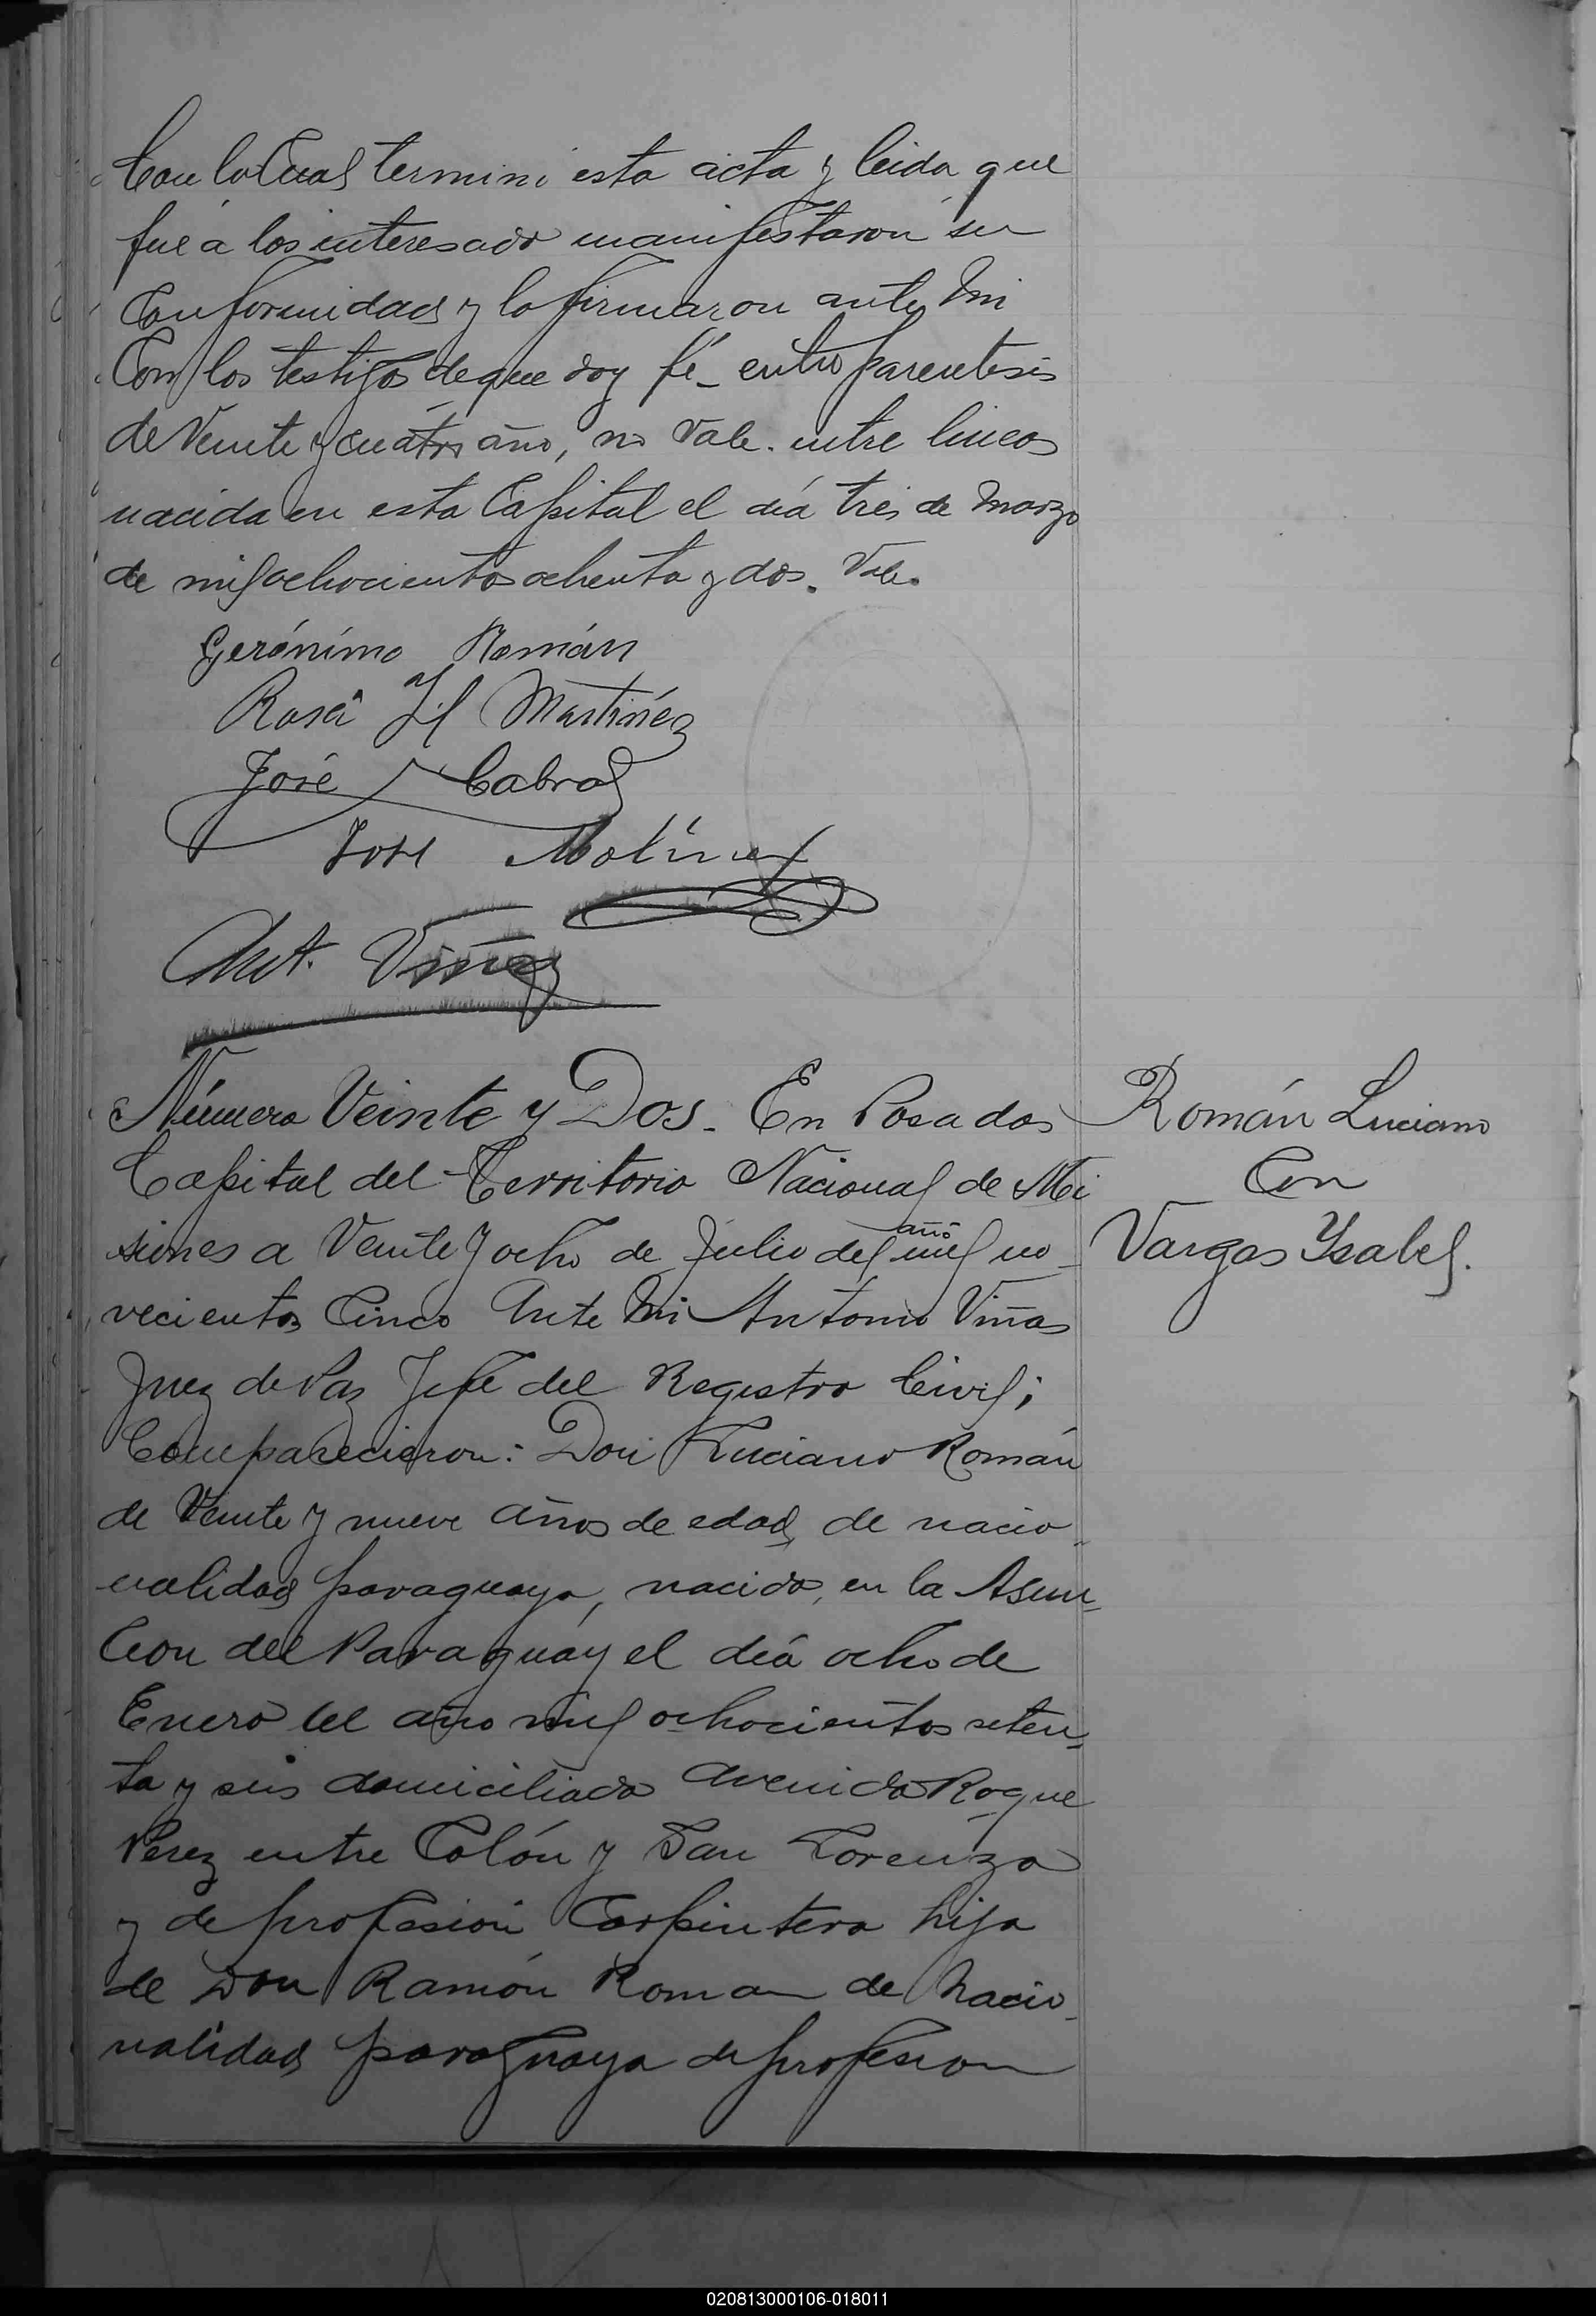 Con lo Cual terminó esta acta y leida que
fué a los interesado manifestaron su
Conformidad y la firmaron ante Mi
Con los testigos de que doy fé_ entre parentesis
de Veinte y cuatro año, no Vale. entre lineas
nacida en esta Capital el día trés de Marzo
de mil ochocientos ochenta y dos. Vale.
Gerónimo Román
Rosa Martínez
José Cabral
José Molína
Ant. Viñas
Número Veinte y Dos. En Posadas
Capital del Territorio Nacional de Mi
siones a Veinte y ocho de Julio del año mil no_
vecientos Cinco Ante Mi Antonio Viñas
Juez de Paz Jefe del Registro Civil;
Comparecieron: Don Luciano Román
de Veinte y nueve años de edad, de nacio_
nalidad paraguaya, nacido, en la Asun_
cion del Paraguay el día ocho de
Enero del año mil ochocientos seten_
ta y seis domiciliado Avenida Roque
Perez entre Colón y San Lorenzo
y de profesión Carpintero hijo
de Don Ramón Roman de Nacio_
nalidad paraguaya de profesion
Román Luciano
Con
Vargas Ysabel.
020813000106-018011